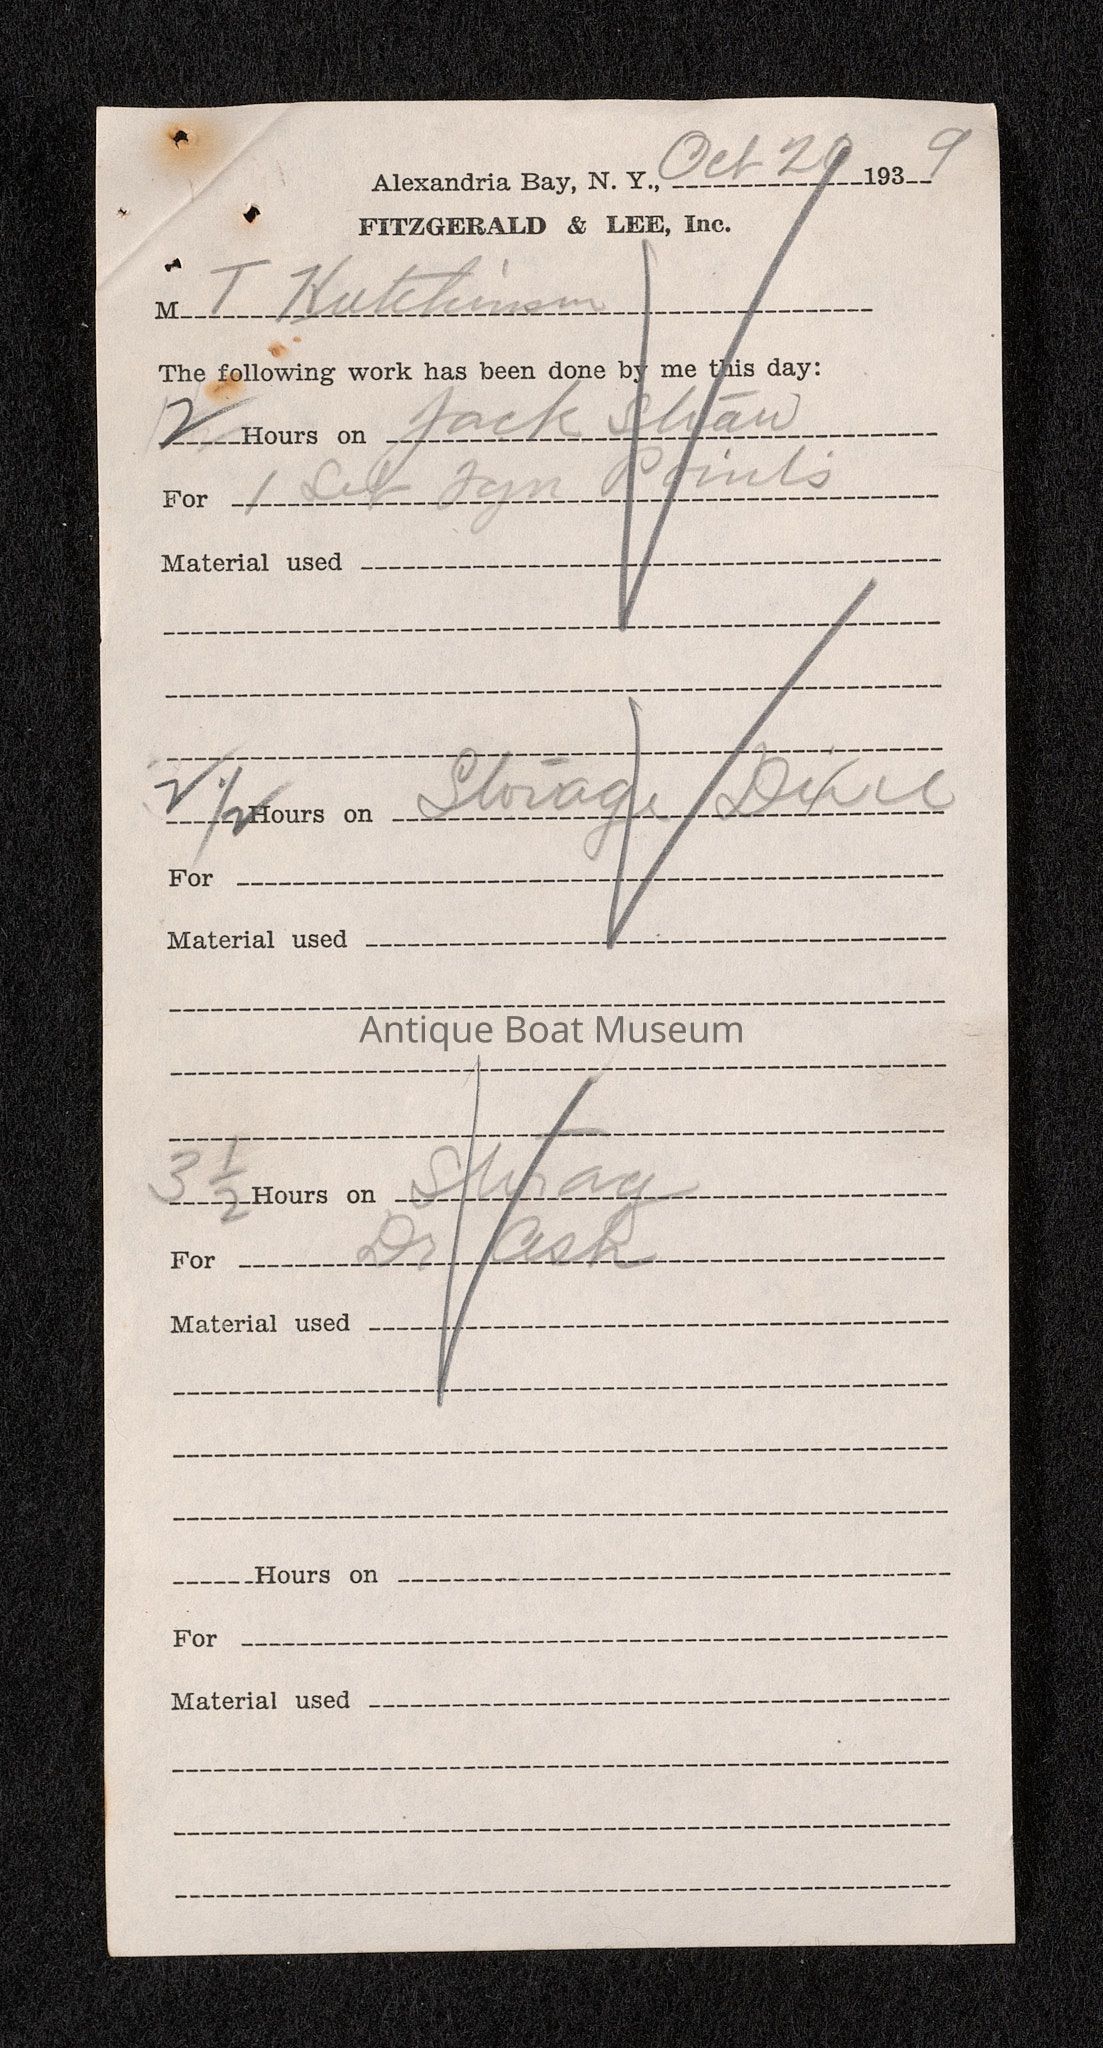 Alexandria Bay, N. Y., Oct 20 1939
FITZGERALD & LEE, Inc.
M T Hutchinson
The following work has been done by me this day:
2 Hours on Jack Straw
For 1 Set Ign Points
Material used
2 1/2 Hours on Storage Dixie
For
Material used
Antique Boat Museum
3 1/2 Hours on Storag
For Dr Cash
Material used
Hours on
For
Material used